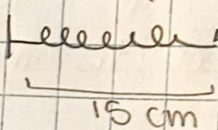 15 cm